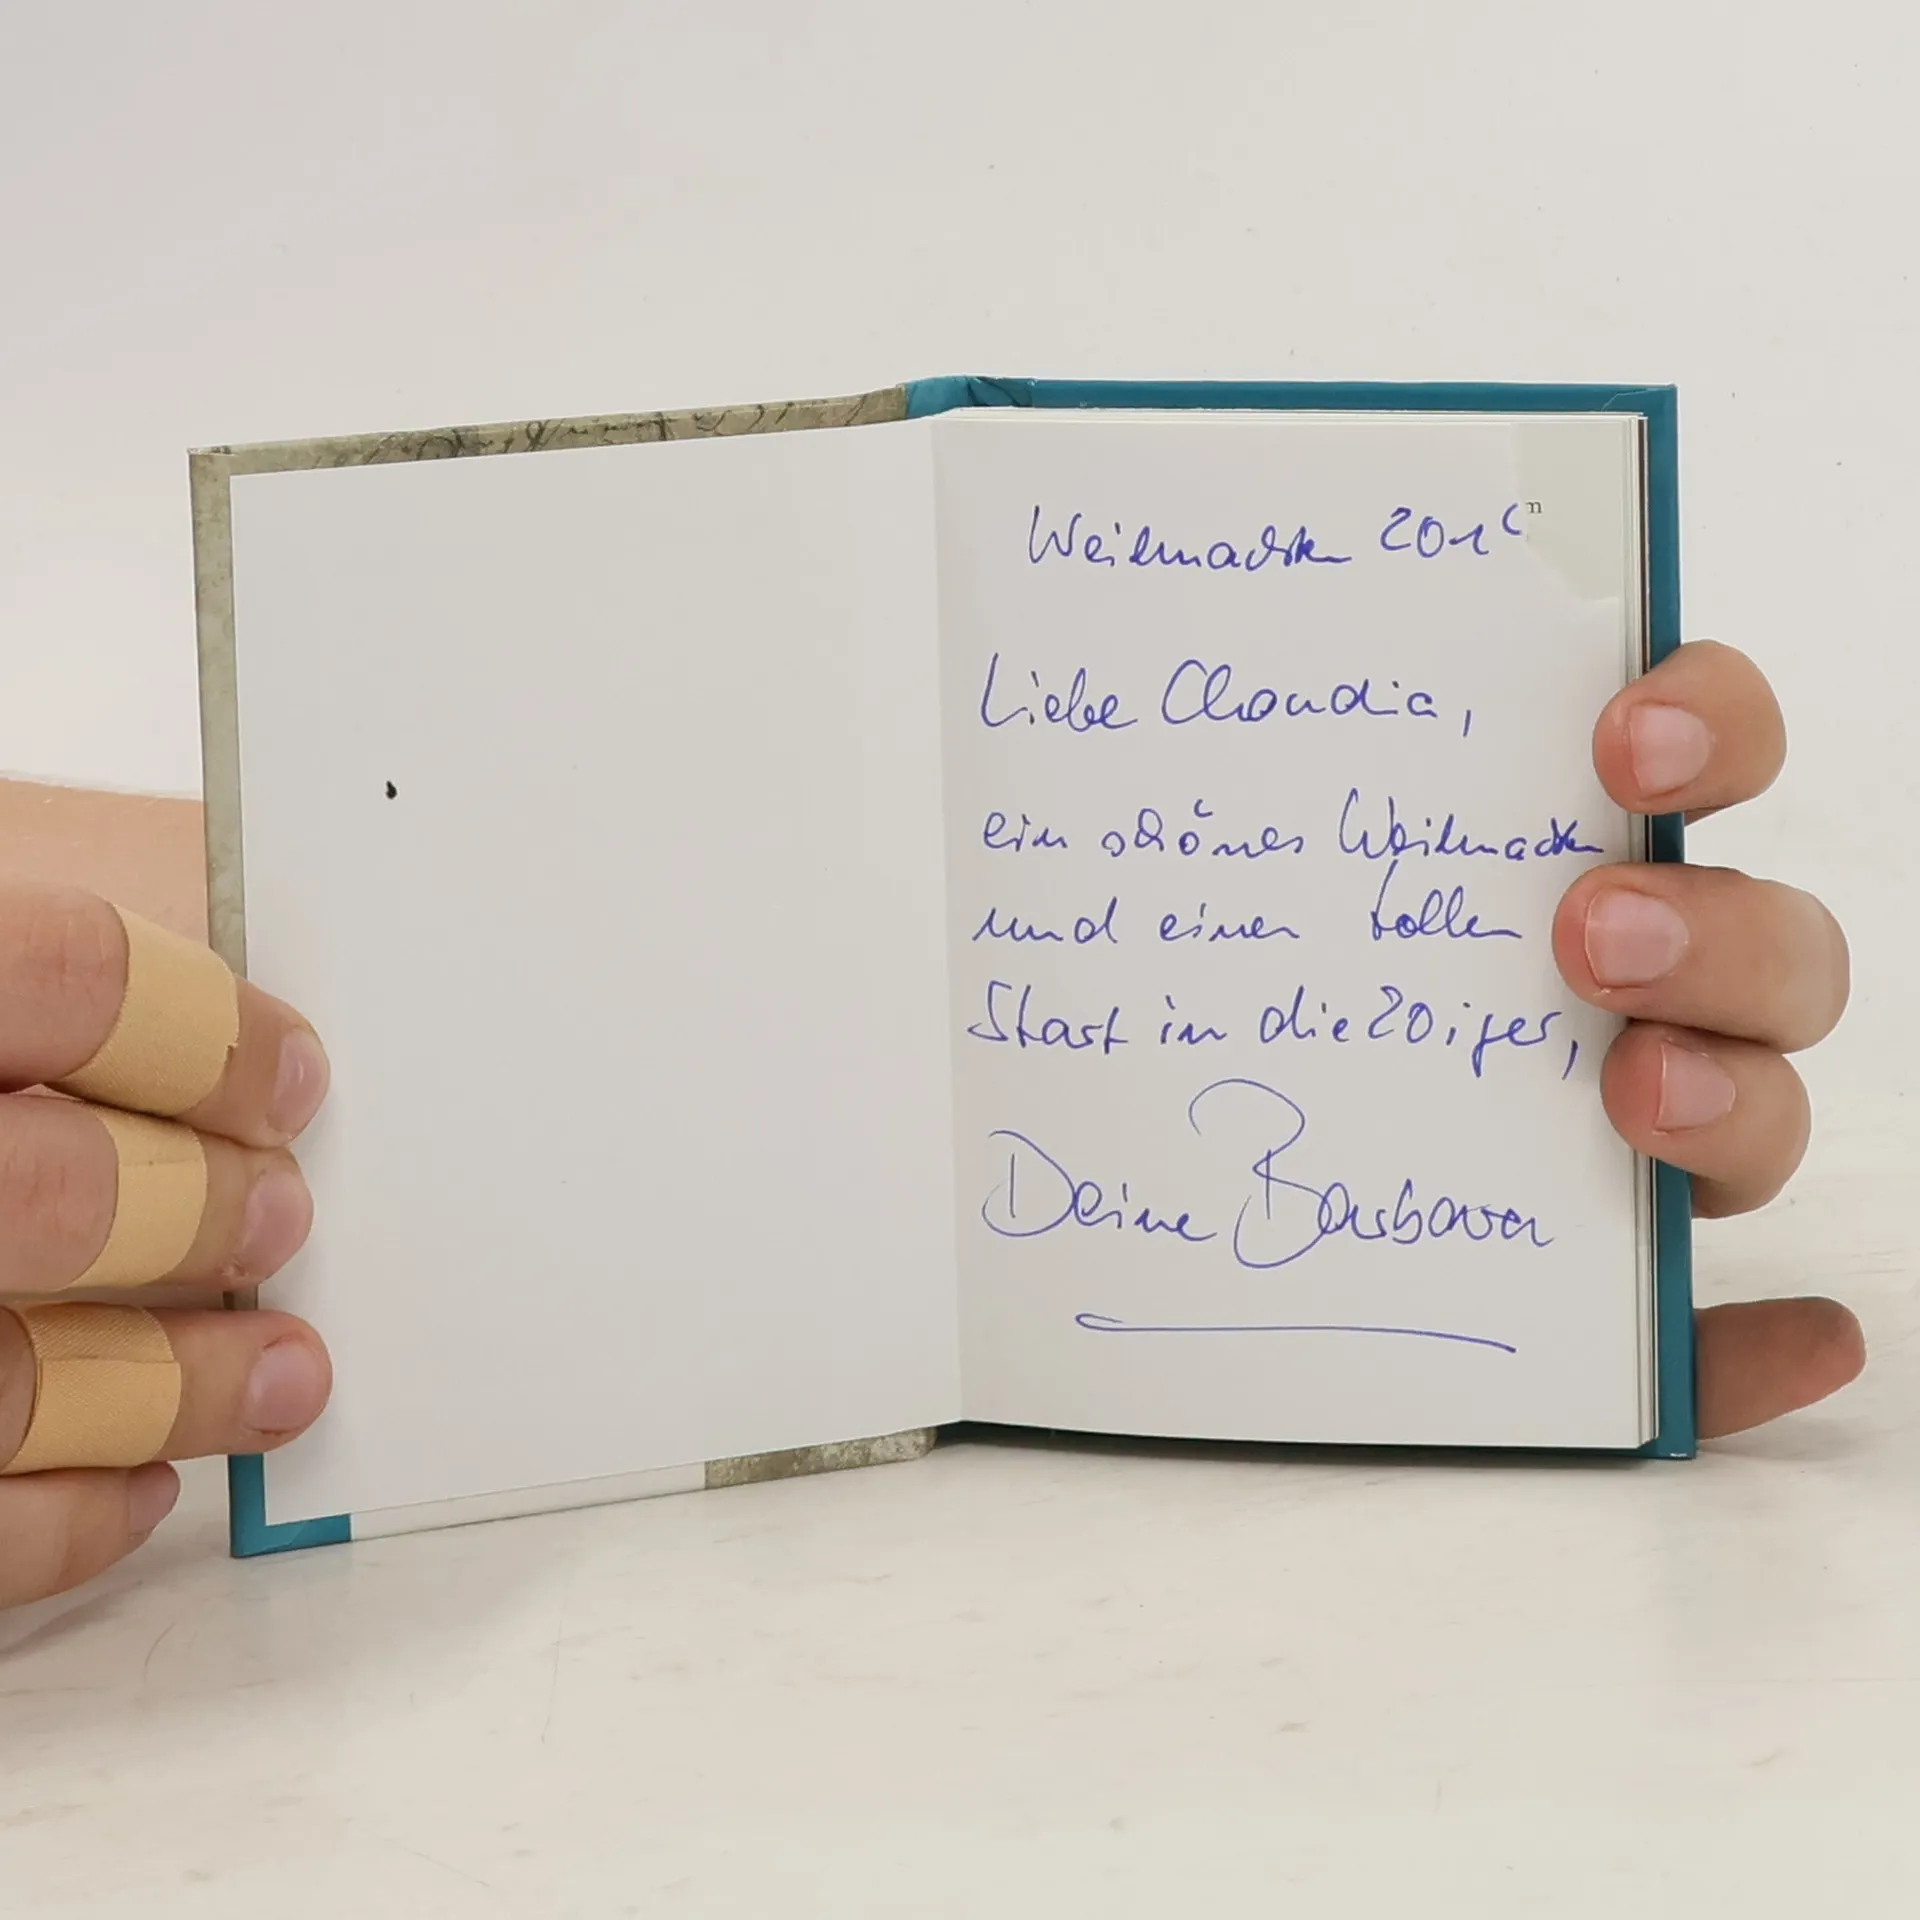 Weihnachten 201
n
Liebe Claudia,
ein schönes Weihnachten
und einen tollen
Start in die 20iger,
Deine Barbara